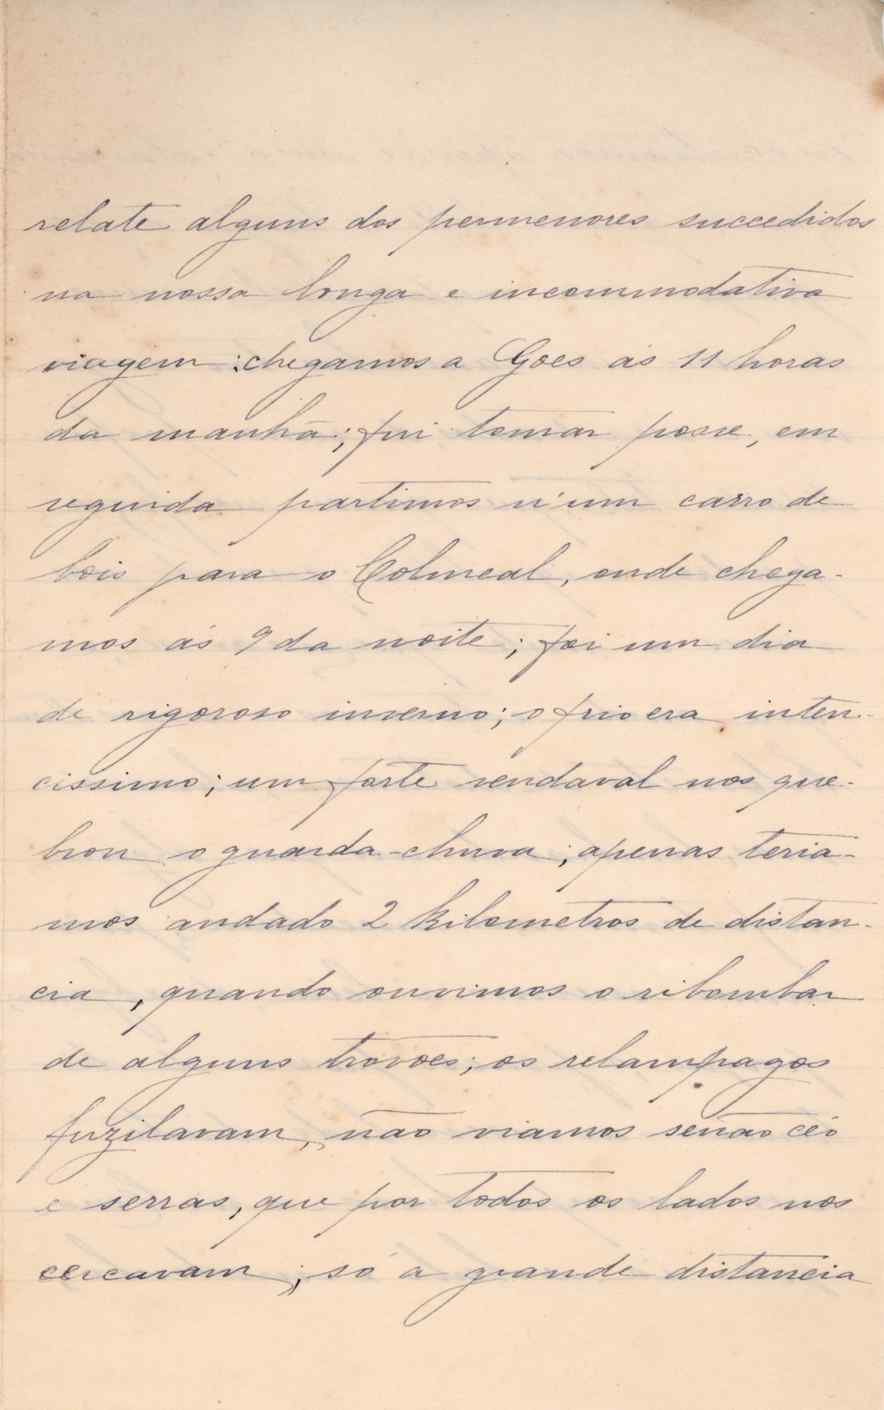 relate alguns dos permenores succedidos
na nossa longa e incommodativa
viagem: chegamos a Goes ás 11 horas
da manhã; fui tomar posse, em
seguida partimos n'um carro de
bois para o Colmeal, onde chega-
mos ás 9 da noite; foi um dia
de rigoroso inverno; o frio era inten-
cissimo; um forte vendaval nos que-
brou o guarda-chuva; apenas teria-
mos andado 2 kilometros de distan-
cia, quando ouvimos o ribombar
de alguns trovões; os relampagos
fuzilavam, não viamos senão céo
e serras, que por todos os lados nos
cercavam; só a grande distancia